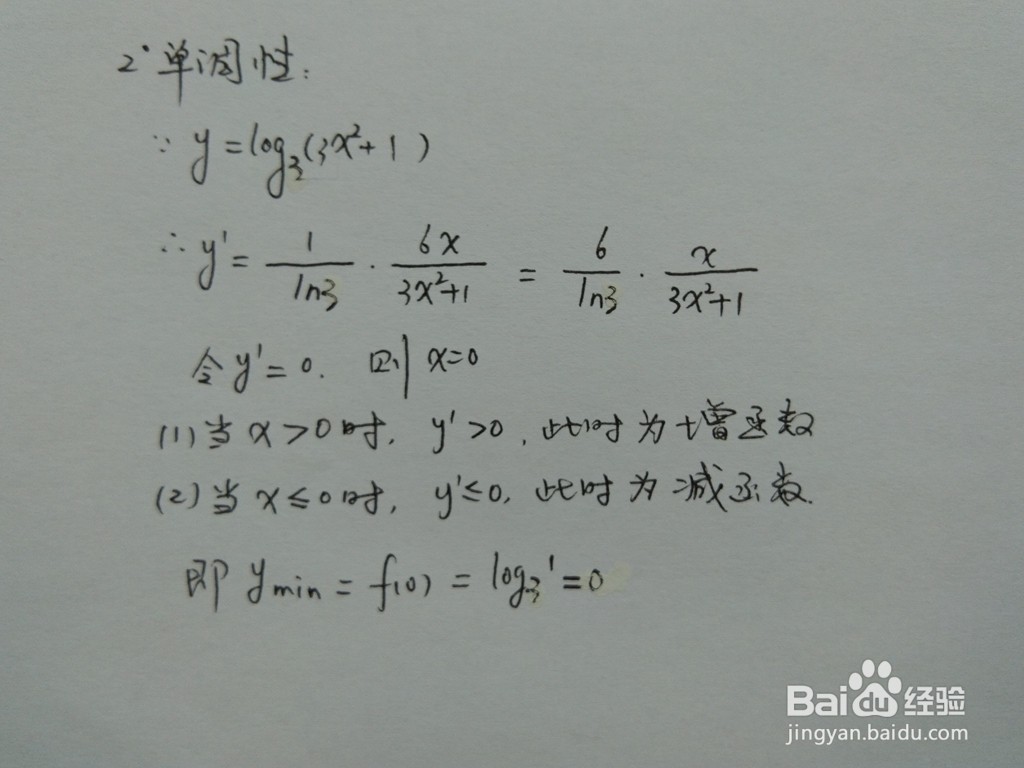 2° 单调性:
∵ y = log₃(3x²+1)
∴ y' = 1/ln3 · 6x/(3x²+1) = 6/ln3 · x/(3x²+1)
令 y' = 0. 则 x=0
(1) 当 x > 0 时, y' > 0, 此时为增函数
(2) 当 x ≤ 0 时, y' ≤ 0, 此时为减函数.
即 y min = f(0) = log₃1 = 0
Baidu经验
jingyan.baidu.com